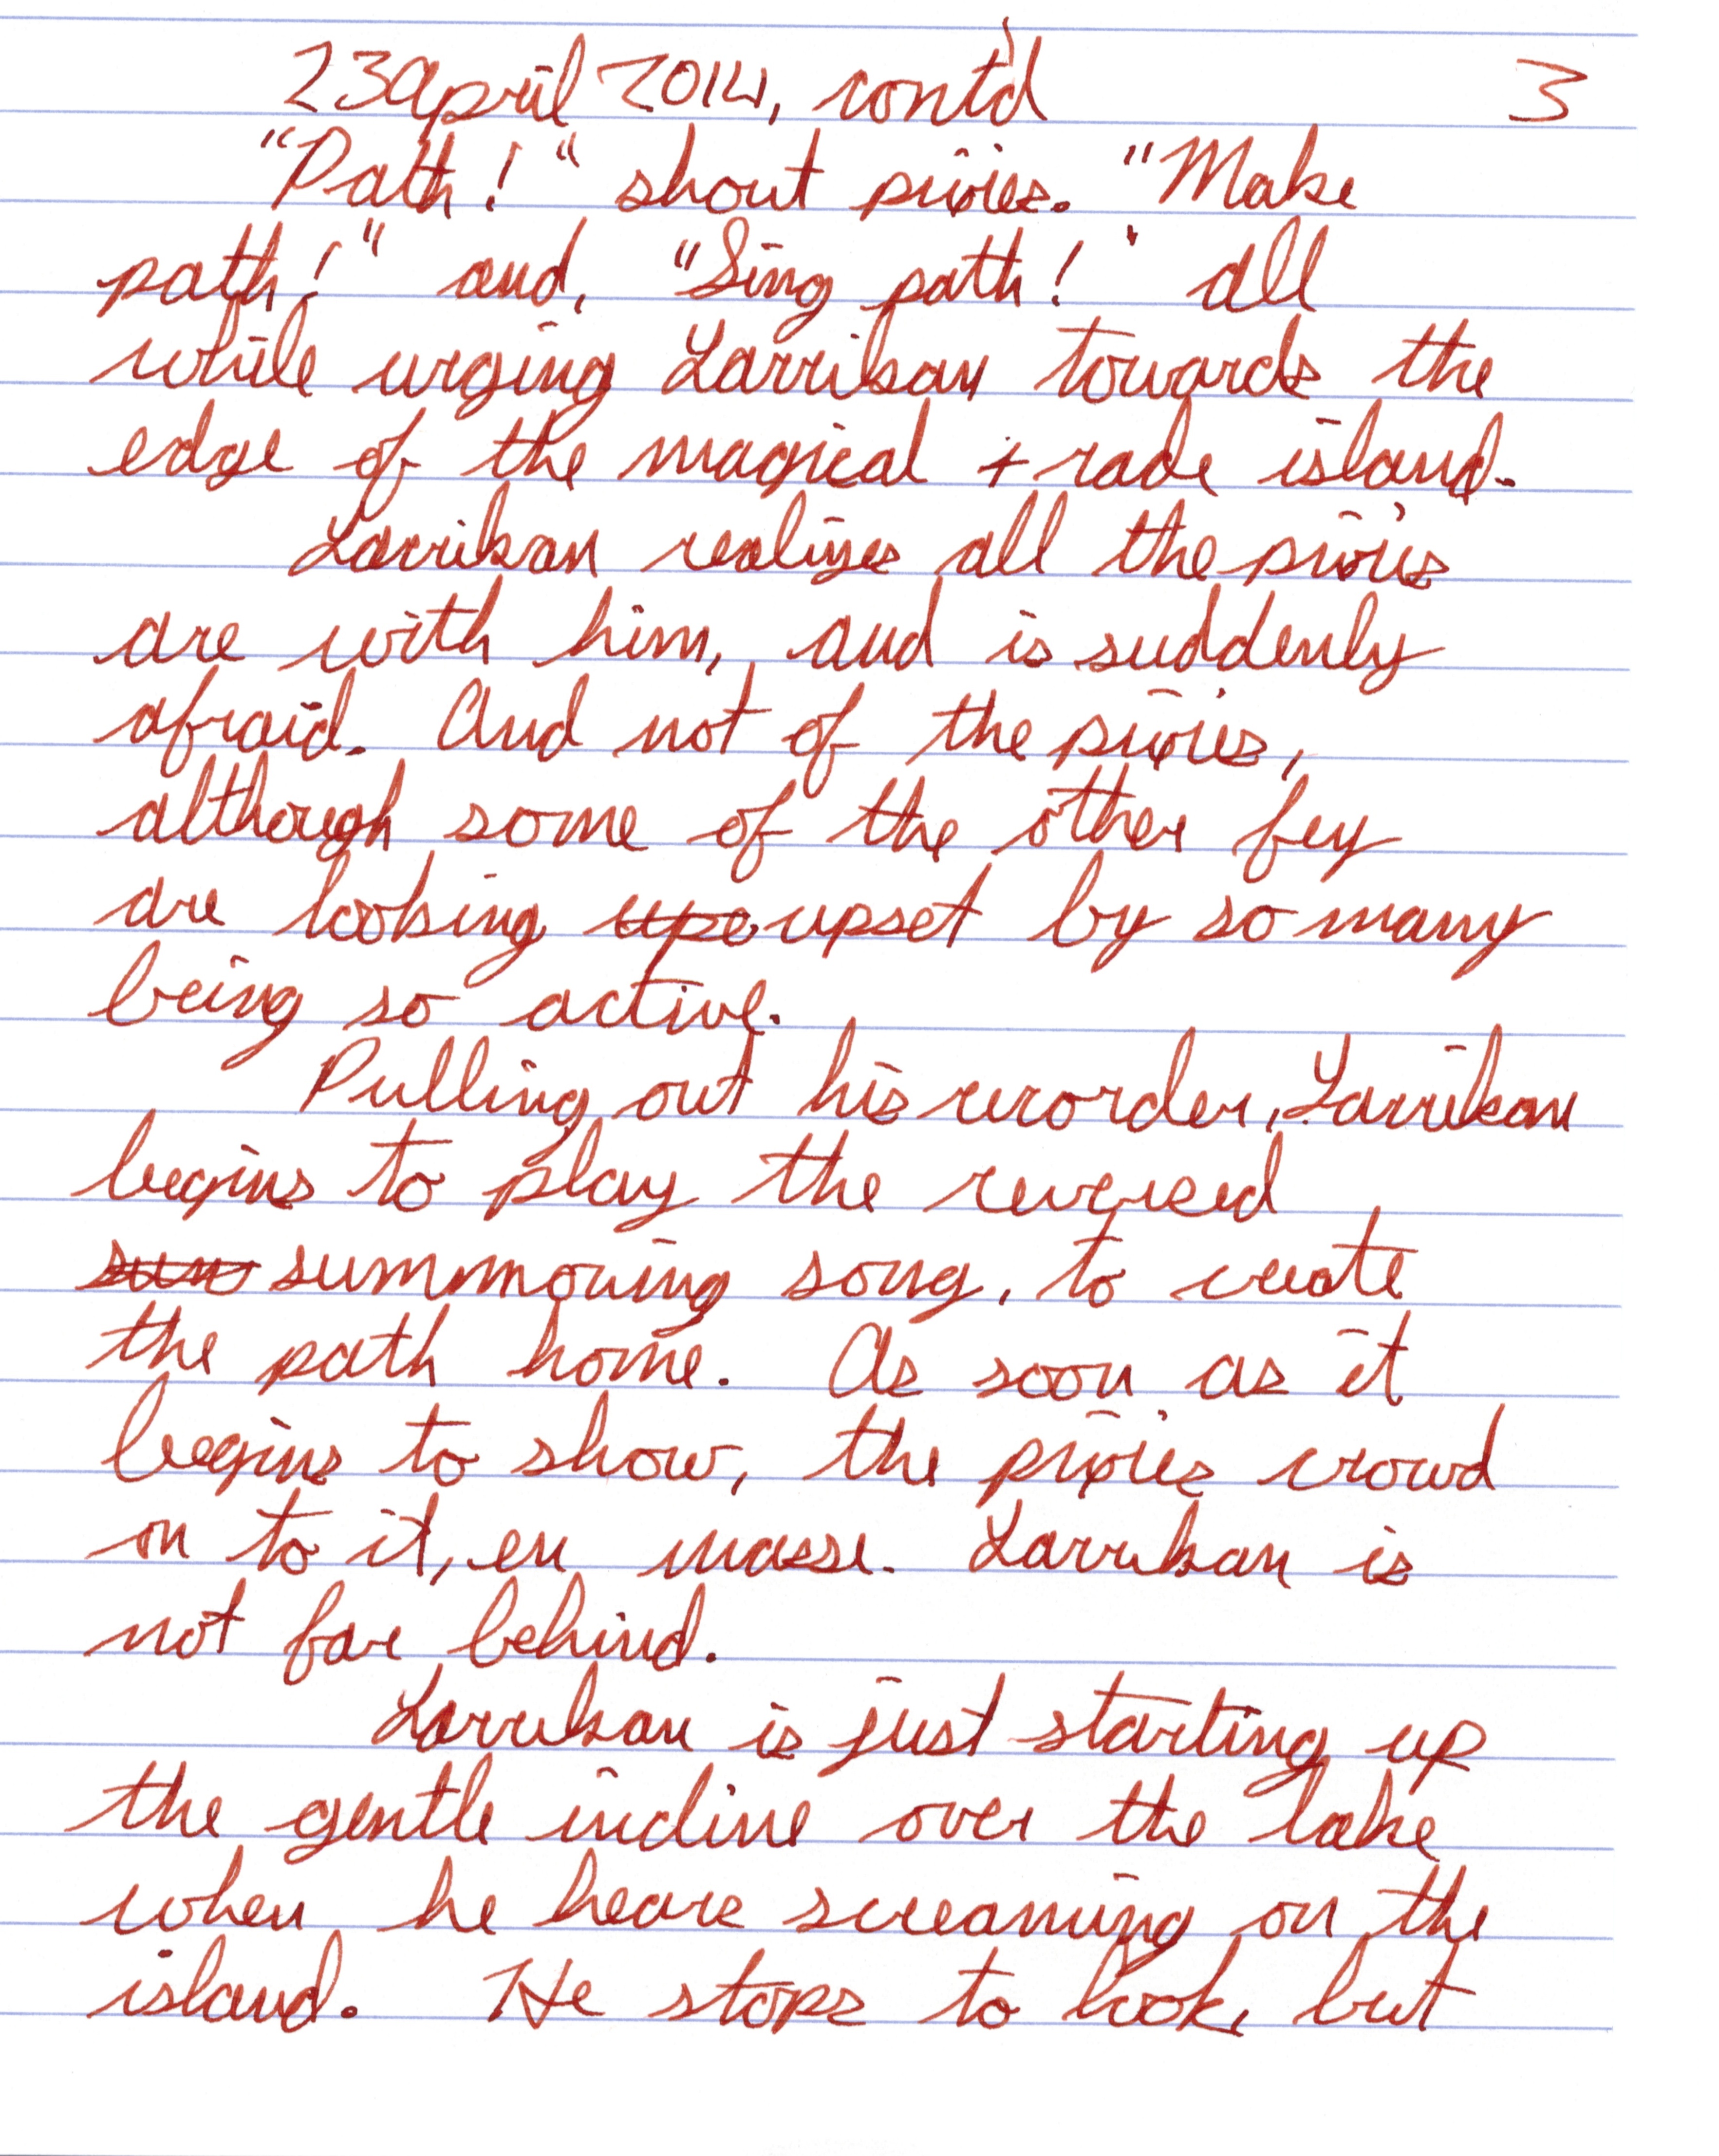 23 April 2014, cont'd 3
"Path!" shout pixies. "Make
path!" and, "Sing path!" all
while urging Larrikan towards the
edge of the magical trade island.
Larrikan realizes all the pixies
are with him, and is suddenly
afraid. And not of the pixies,
although some of the other fey
are looking upo upset by so many
being so active.
Pulling out his recorder, Larrikan
begins to play the reversed
sum summoning song, to create
the path home. As soon as it
begins to show, the pixies crowd
on to it, en masse. Larrikan is
not far behind.
Larrikan is just starting up
the gentle incline over the lake
when he hears screaming on the
island. He stops to look, but